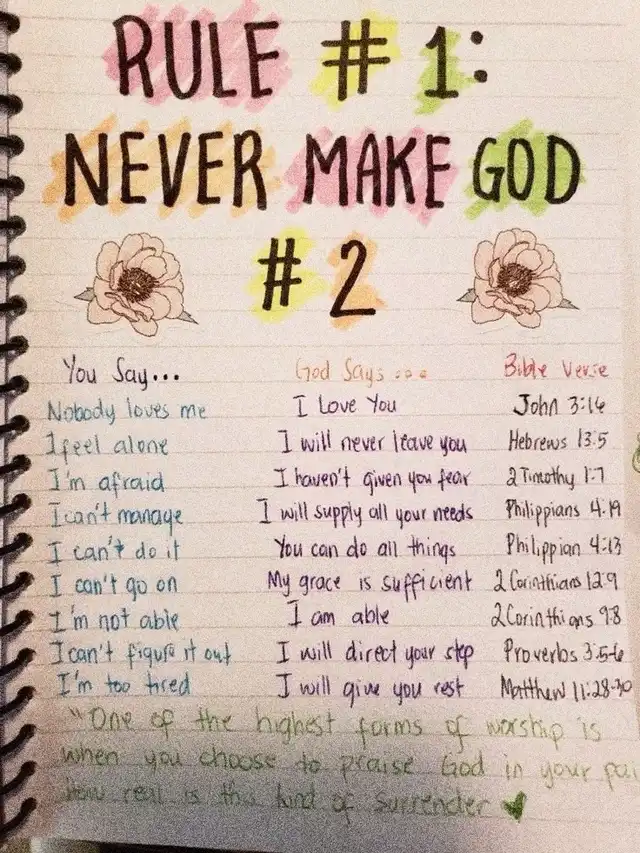 RULE #1:
NEVER MAKE GOD
#2
You Say... God Says... Bible Verse
Nobody loves me I Love You John 3:16
I feel alone I will never leave you Hebrews 13:5
I'm afraid I haven't given you fear 2 Timothy 1:7
I can't manage I will supply all your needs Philippians 4:19
I can't do it You can do all things Philippian 4:13
I can't go on My grace is sufficient 2 Corinthians 12:9
I'm not able I am able 2 Corinthians 9:8
I can't figure it out I will direct your step Proverbs 3:5-6
I'm too tired I will give you rest Matthew 11:28-30
"One of the highest forms of worship is
when you choose to praise God in your pai
how real is this kind of surrender